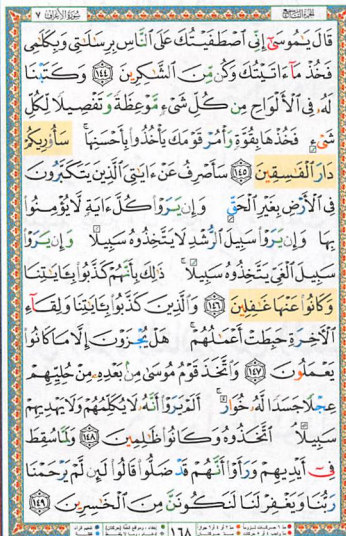 ٧ سُورَةُ الأَعْرَافِ الجُزْءُ التَّاسِعُ
قَالَ يَٰمُوسَىٰٓ إِنِّي ٱصۡطَفَيۡتُكَ عَلَى ٱلنَّاسِ بِرِسَٰلَٰتِي وَبِكَلَٰمِي
فَخُذۡ مَآ ءَاتَيۡتُكَ وَكُن مِّنَ ٱلشَّٰكِرِينَ ١٤٤ وَكَتَبۡنَا
لَهُۥ فِي ٱلۡأَلۡوَاحِ مِن كُلِّ شَيۡءٖ مَّوۡعِظَةٗ وَتَفۡصِيلٗا لِّكُلِّ
شَيۡءٖ فَخُذۡهَا بِقُوَّةٖ وَأۡمُرۡ قَوۡمَكَ يَأۡخُذُواْ بِأَحۡسَنِهَاۚ سَأُوْرِيكُمۡ
دَارَ ٱلۡفَٰسِقِينَ ١٤٥ سَأَصۡرِفُ عَنۡ ءَايَٰتِيَ ٱلَّذِينَ يَتَكَبَّرُونَ
فِي ٱلۡأَرۡضِ بِغَيۡرِ ٱلۡحَقِّ وَإِن يَرَوۡاْ كُلَّ ءَايَةٖ لَّا يُؤۡمِنُواْ
بِهَا وَإِن يَرَوۡاْ سَبِيلَ ٱلرُّشۡدِ لَا يَتَّخِذُوهُ سَبِيلٗا وَإِن يَرَوۡاْ
سَبِيلَ ٱلۡغَيِّ يَتَّخِذُوهُ سَبِيلٗاۚ ذَٰلِكَ بِأَنَّهُمۡ كَذَّبُواْ بِـَٔايَٰتِنَا
وَكَانُواْ عَنۡهَا غَٰفِلِينَ ١٤٦ وَٱلَّذِينَ كَذَّبُواْ بِـَٔايَٰتِنَا وَلِقَآءِ
ٱلۡأٓخِرَةِ حَبِطَتۡ أَعۡمَٰلُهُمۡۚ هَلۡ يُجۡزَوۡنَ إِلَّا مَا كَانُواْ
يَعۡمَلُونَ ١٤٧ وَٱتَّخَذَ قَوۡمُ مُوسَىٰ مِنۢ بَعۡدِهِۦ مِنۡ حُلِيِّهِمۡ
عِجۡلٗا جَسَدٗا لَّهُۥ خُوَارٌۚ أَلَمۡ يَرَوۡاْ أَنَّهُۥ لَا يُكَلِّمُهُمۡ وَلَا يَهۡدِيهِمۡ
سَبِيلًاۘ ٱتَّخَذُوهُ وَكَانُواْ ظَٰلِمِينَ ١٤٨ وَلَمَّا سُقِطَ
فِيٓ أَيۡدِيهِمۡ وَرَأَوۡاْ أَنَّهُمۡ قَدۡ ضَلُّواْ قَالُواْ لَئِن لَّمۡ يَرۡحَمۡنَا
رَبُّنَا وَيَغۡفِرۡ لَنَا لَنَكُونَنَّ مِنَ ٱلۡخَٰسِرِينَ ١٤٩
١٦٨